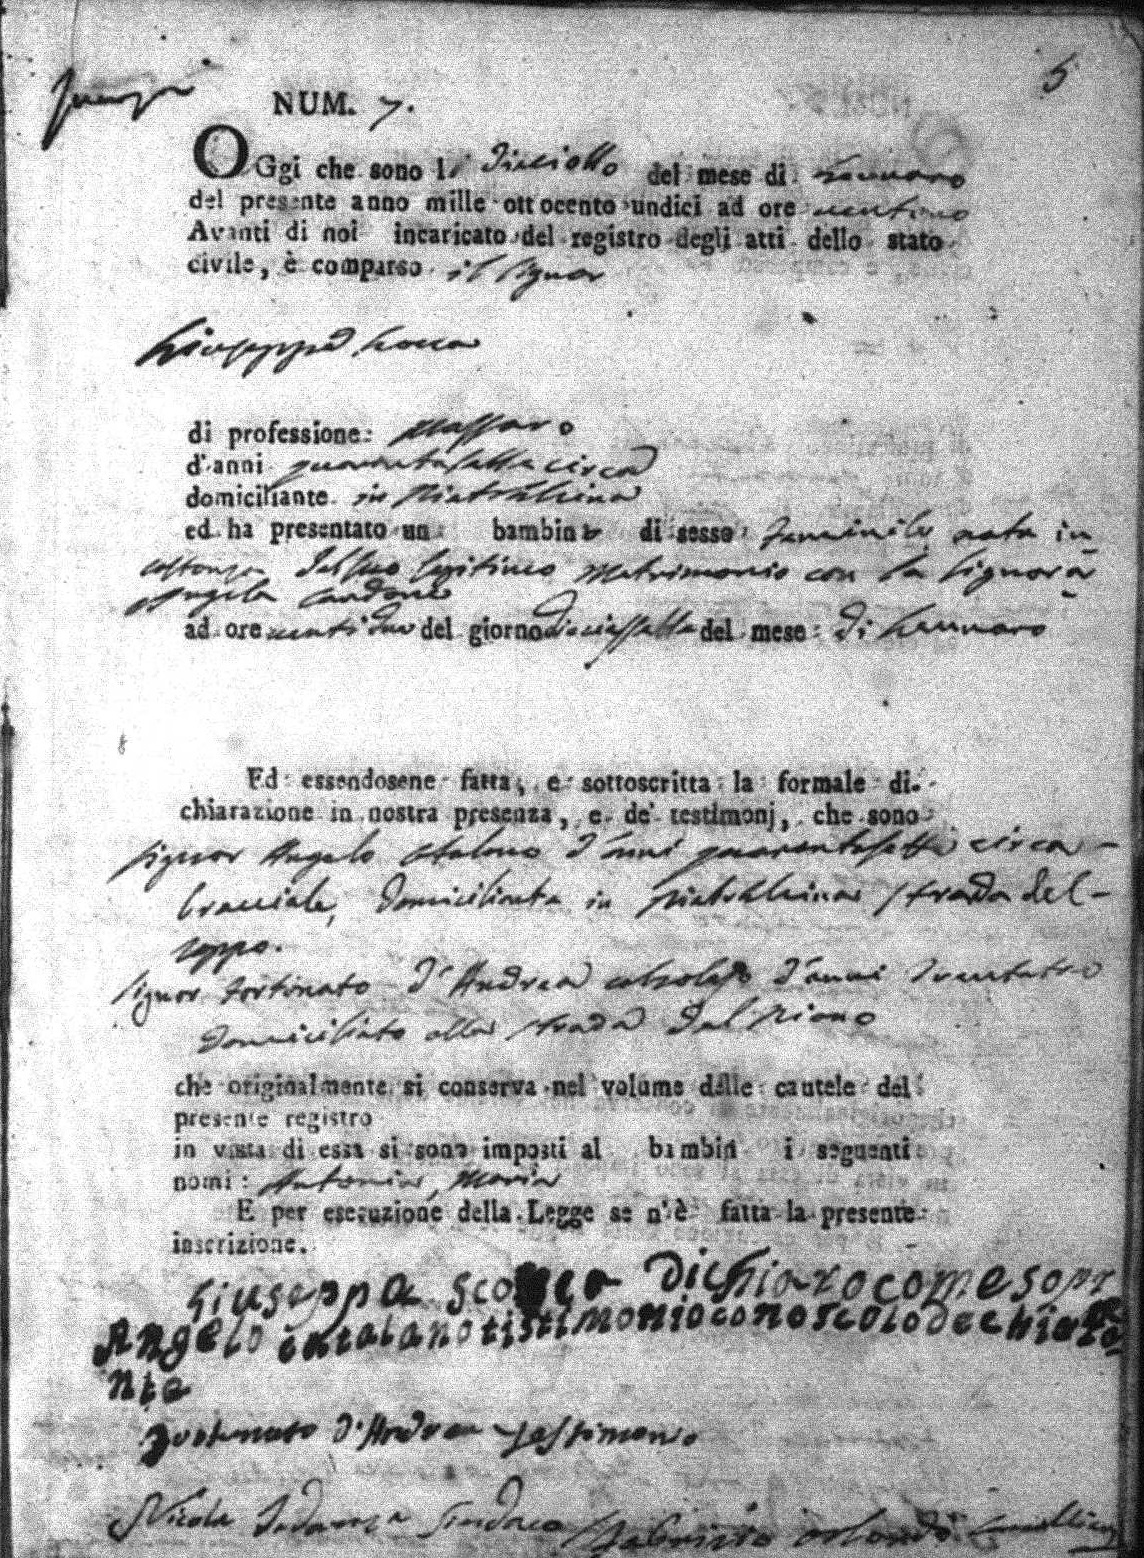 5
NUM. 7.
OGgi che sono li Dieciotto del mese di Gennaro
del presente anno mille ottocento undici ad ore ventuno
Avanti di noi incaricato del registro degli atti dello stato
civile, è comparso il Signor
Giuseppe
di professione: Massaro
d'anni quarantasette circa
domiciliante in Pietrelcina
ed ha presentato un bambin di sesso feminile nata in
costanza del suo legitimo Matrimonio con la Signora
Angela Cardone
ad ore ventidue del giorno diecissette del mese: di Gennaro
Ed essendosene fatta, e sottoscritta la formale di-
chiarazione in nostra presenza, e de' testimonj, che sono
Signor Angelo Catalano d'anni quarantasette circa
bracciale, domiciliante in Pietrelcina strada del
Signor Fortunato d'Andrea d'anni trentatre
domiciliato alla strada del Piano
che originalmente si conserva nel volume delle cautele del
presente registro
in vista di essa si sono imposti al bambin i seguenti
nomi: Antonia, Maria
E per esecuzione della Legge se n'è fatta la presente
inscrizione.
Giuseppe Scocca Dichiaro come sopr
Angelo catalano tistimonio conoscolo dechiara
nte
Fortunato d'Andrea Testimonio
Nicola Sindaco